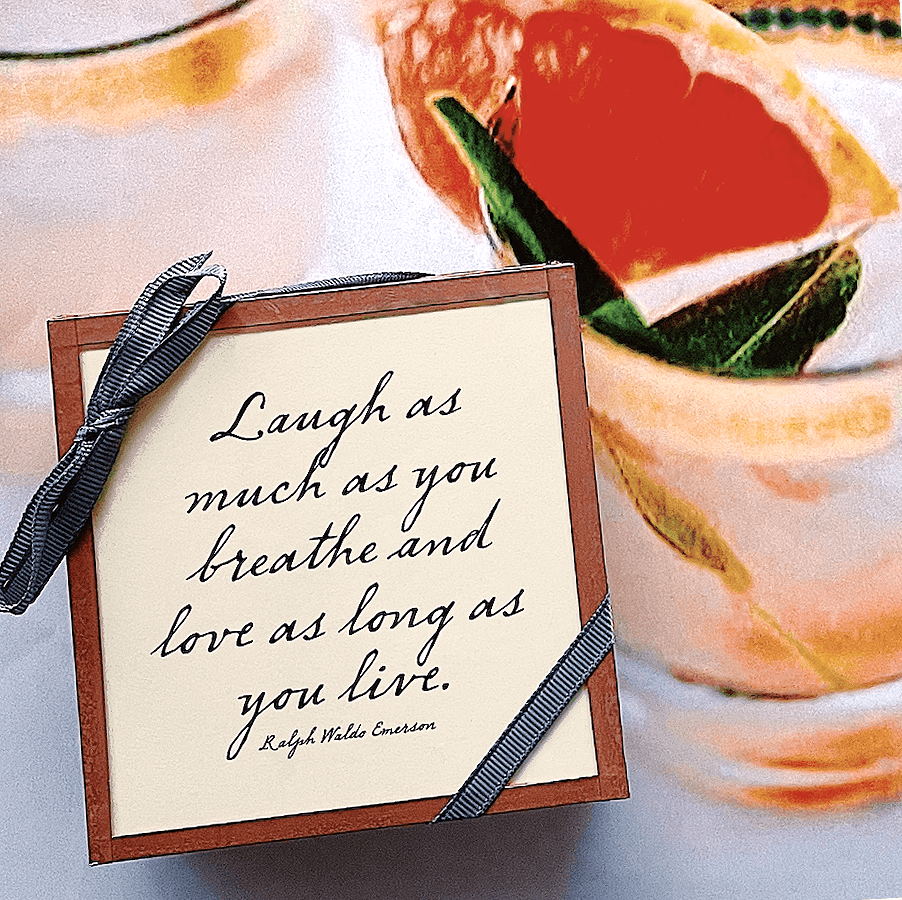 Laugh as
much as you
breathe and
love as long as
you live.
Ralph Waldo Emerson